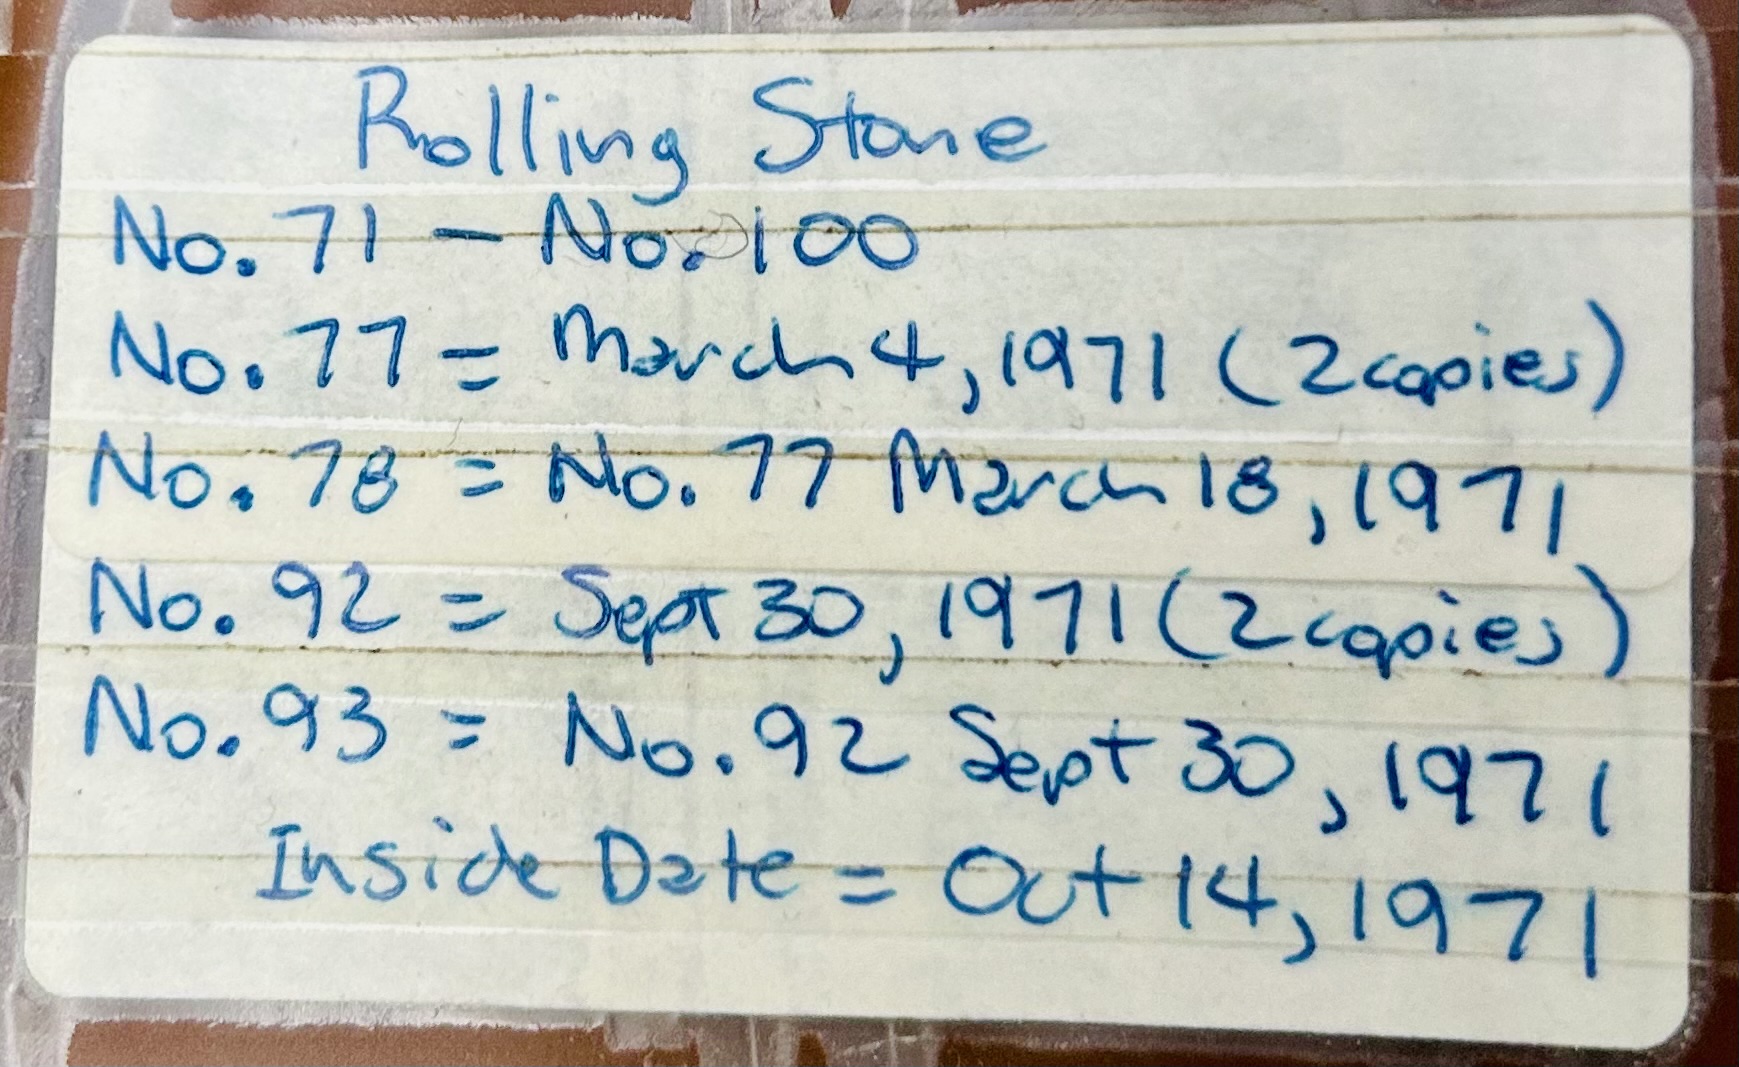 Rolling Stone
No. 71 - No. 100
No. 77 = March 4, 1971 (2 copies)
No. 78 = No. 77 March 18, 1971
No. 92 = Sept 30, 1971 (2 copies)
No. 93 = No. 92 Sept 30, 1971
Inside Date = Oct 14, 1971